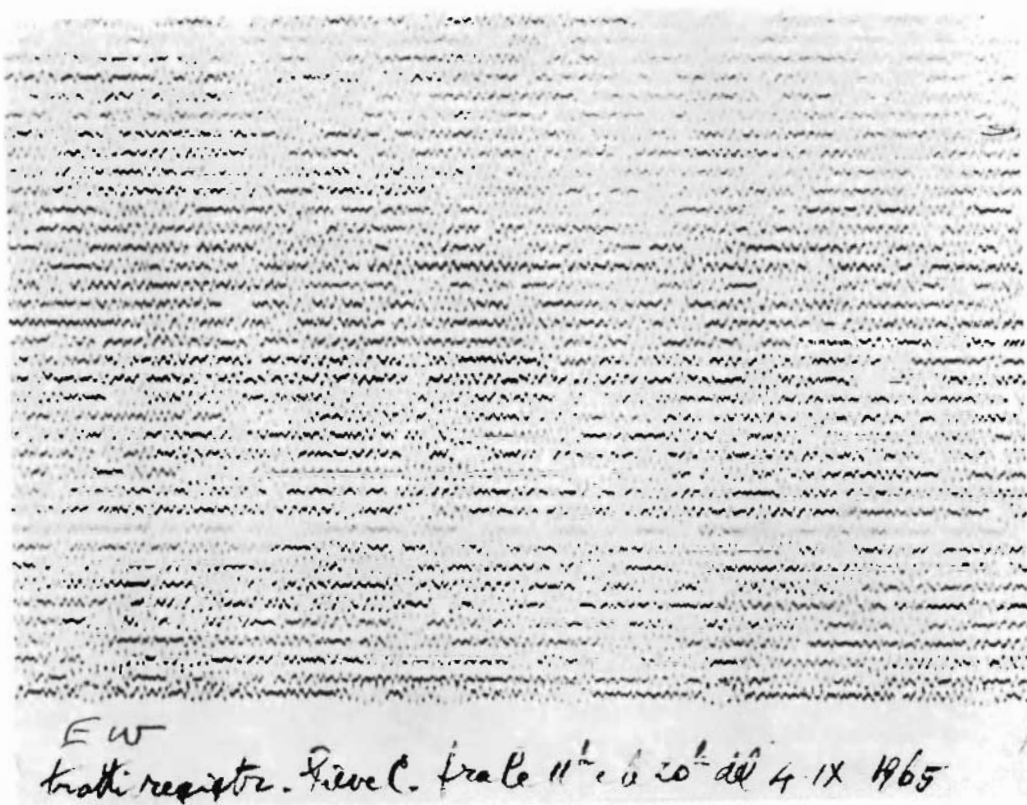 E W
tratti registr. Pieve C. fra le 11h e le 20h del 4 IX 1965